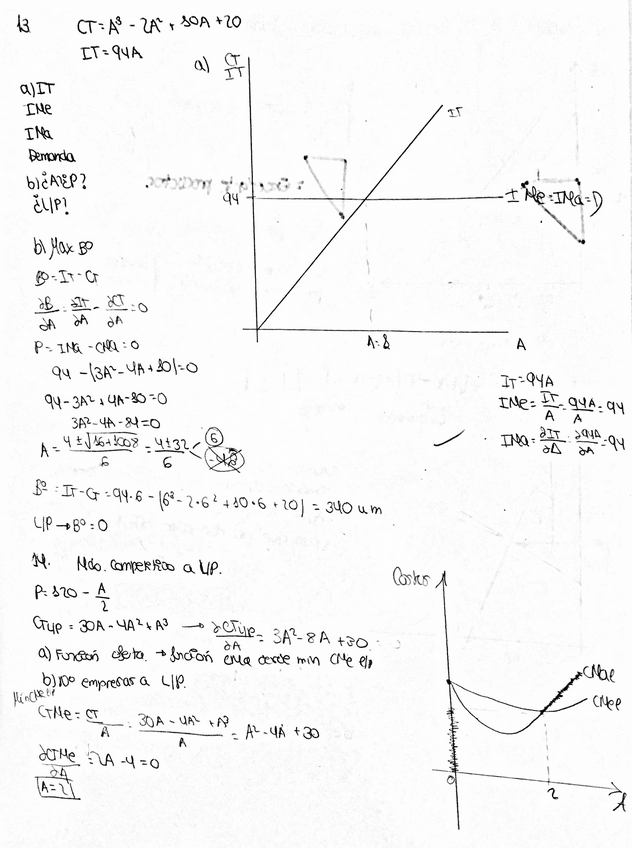 13 CT = A³ - 2A² + 10A + 20
IT = 94A
a) CT
IT
a) IT
IMe
IMa
Demanda
b) ¿A? ¿P?
¿L/P?
IT
94
IMe = IMa = D
A
b) Max Bº
Bº = IT - CT
∂B/∂A = ∂IT/∂A - ∂CT/∂A = 0
P = IMa - CMa = 0
94 - (3A² - 4A + 10) = 0
94 - 3A² + 4A - 10 = 0
3A² - 4A - 84 = 0
A = (4 ± √(16 + 1008))/6 = (4 ± 32)/6
6
IT = 94A
IMe = IT/A = 94A/A = 94
IMa = ∂IT/∂A = ∂94A/∂A = 94
Bº = IT - CT = 94·6 - (6³ - 2·6² + 10·6 + 20) = 340 um
L/P → Bº = 0
14. Mdo. competitivo a L/P.
P = 120 - A/2
CTL/P = 30A - 4A² + A³ → ∂CTL/P/∂A = 3A² - 8A + 30
a) Función oferta. → función CMa desde min CMe l/p
b) nº empresas a L/P.
CTMe = CT/A = (30A - 4A² + A³)/A = A² - 4A + 30
∂CTMe/∂A = 2A - 4 = 0
A = 2
Costes
CMal
CMel
0
2
A